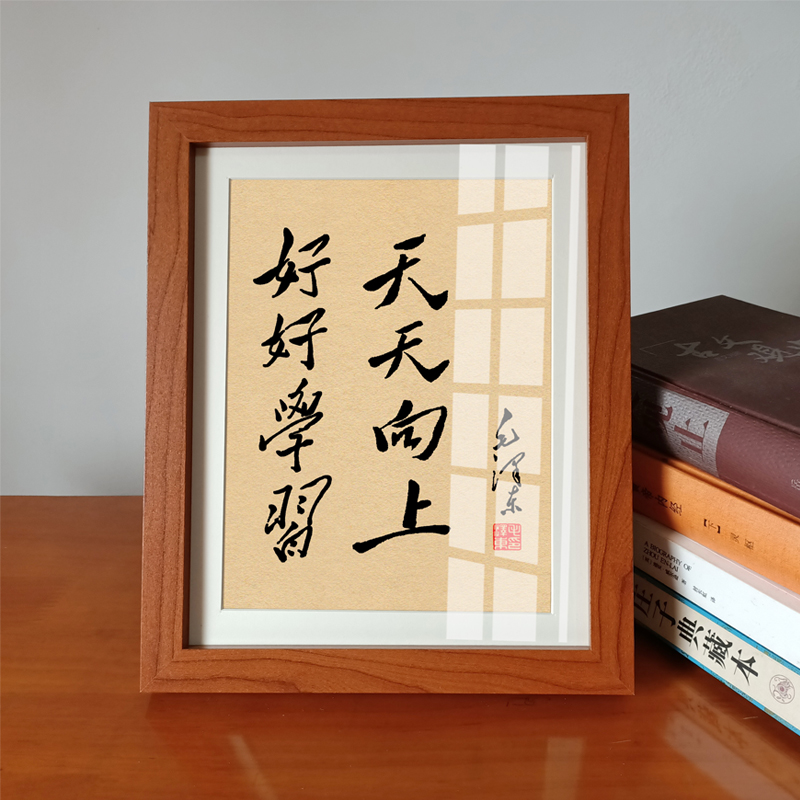 好好學習
天天向上
毛澤东
A BIOGRAPHY OF
ZHOU ENLAI
庄子典藏本